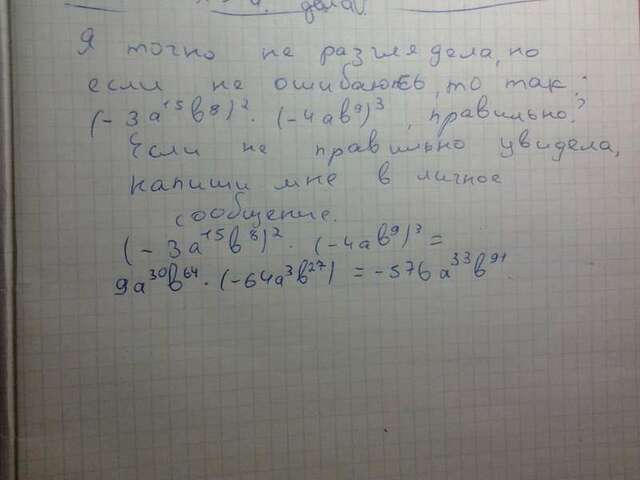 дела
Я точно не разглядела, но
если не ошибаюсь, то так:
(-3a¹⁵b⁸)² · (-4ab⁹)³, правильно?
Если не правильно увидела,
напиши мне в личное
сообщение.
(-3a¹⁵b⁸)² · (-4ab⁹)³ =
9a³⁰b⁶⁴ · (-64a³b²⁷) = -576a³³b⁹¹